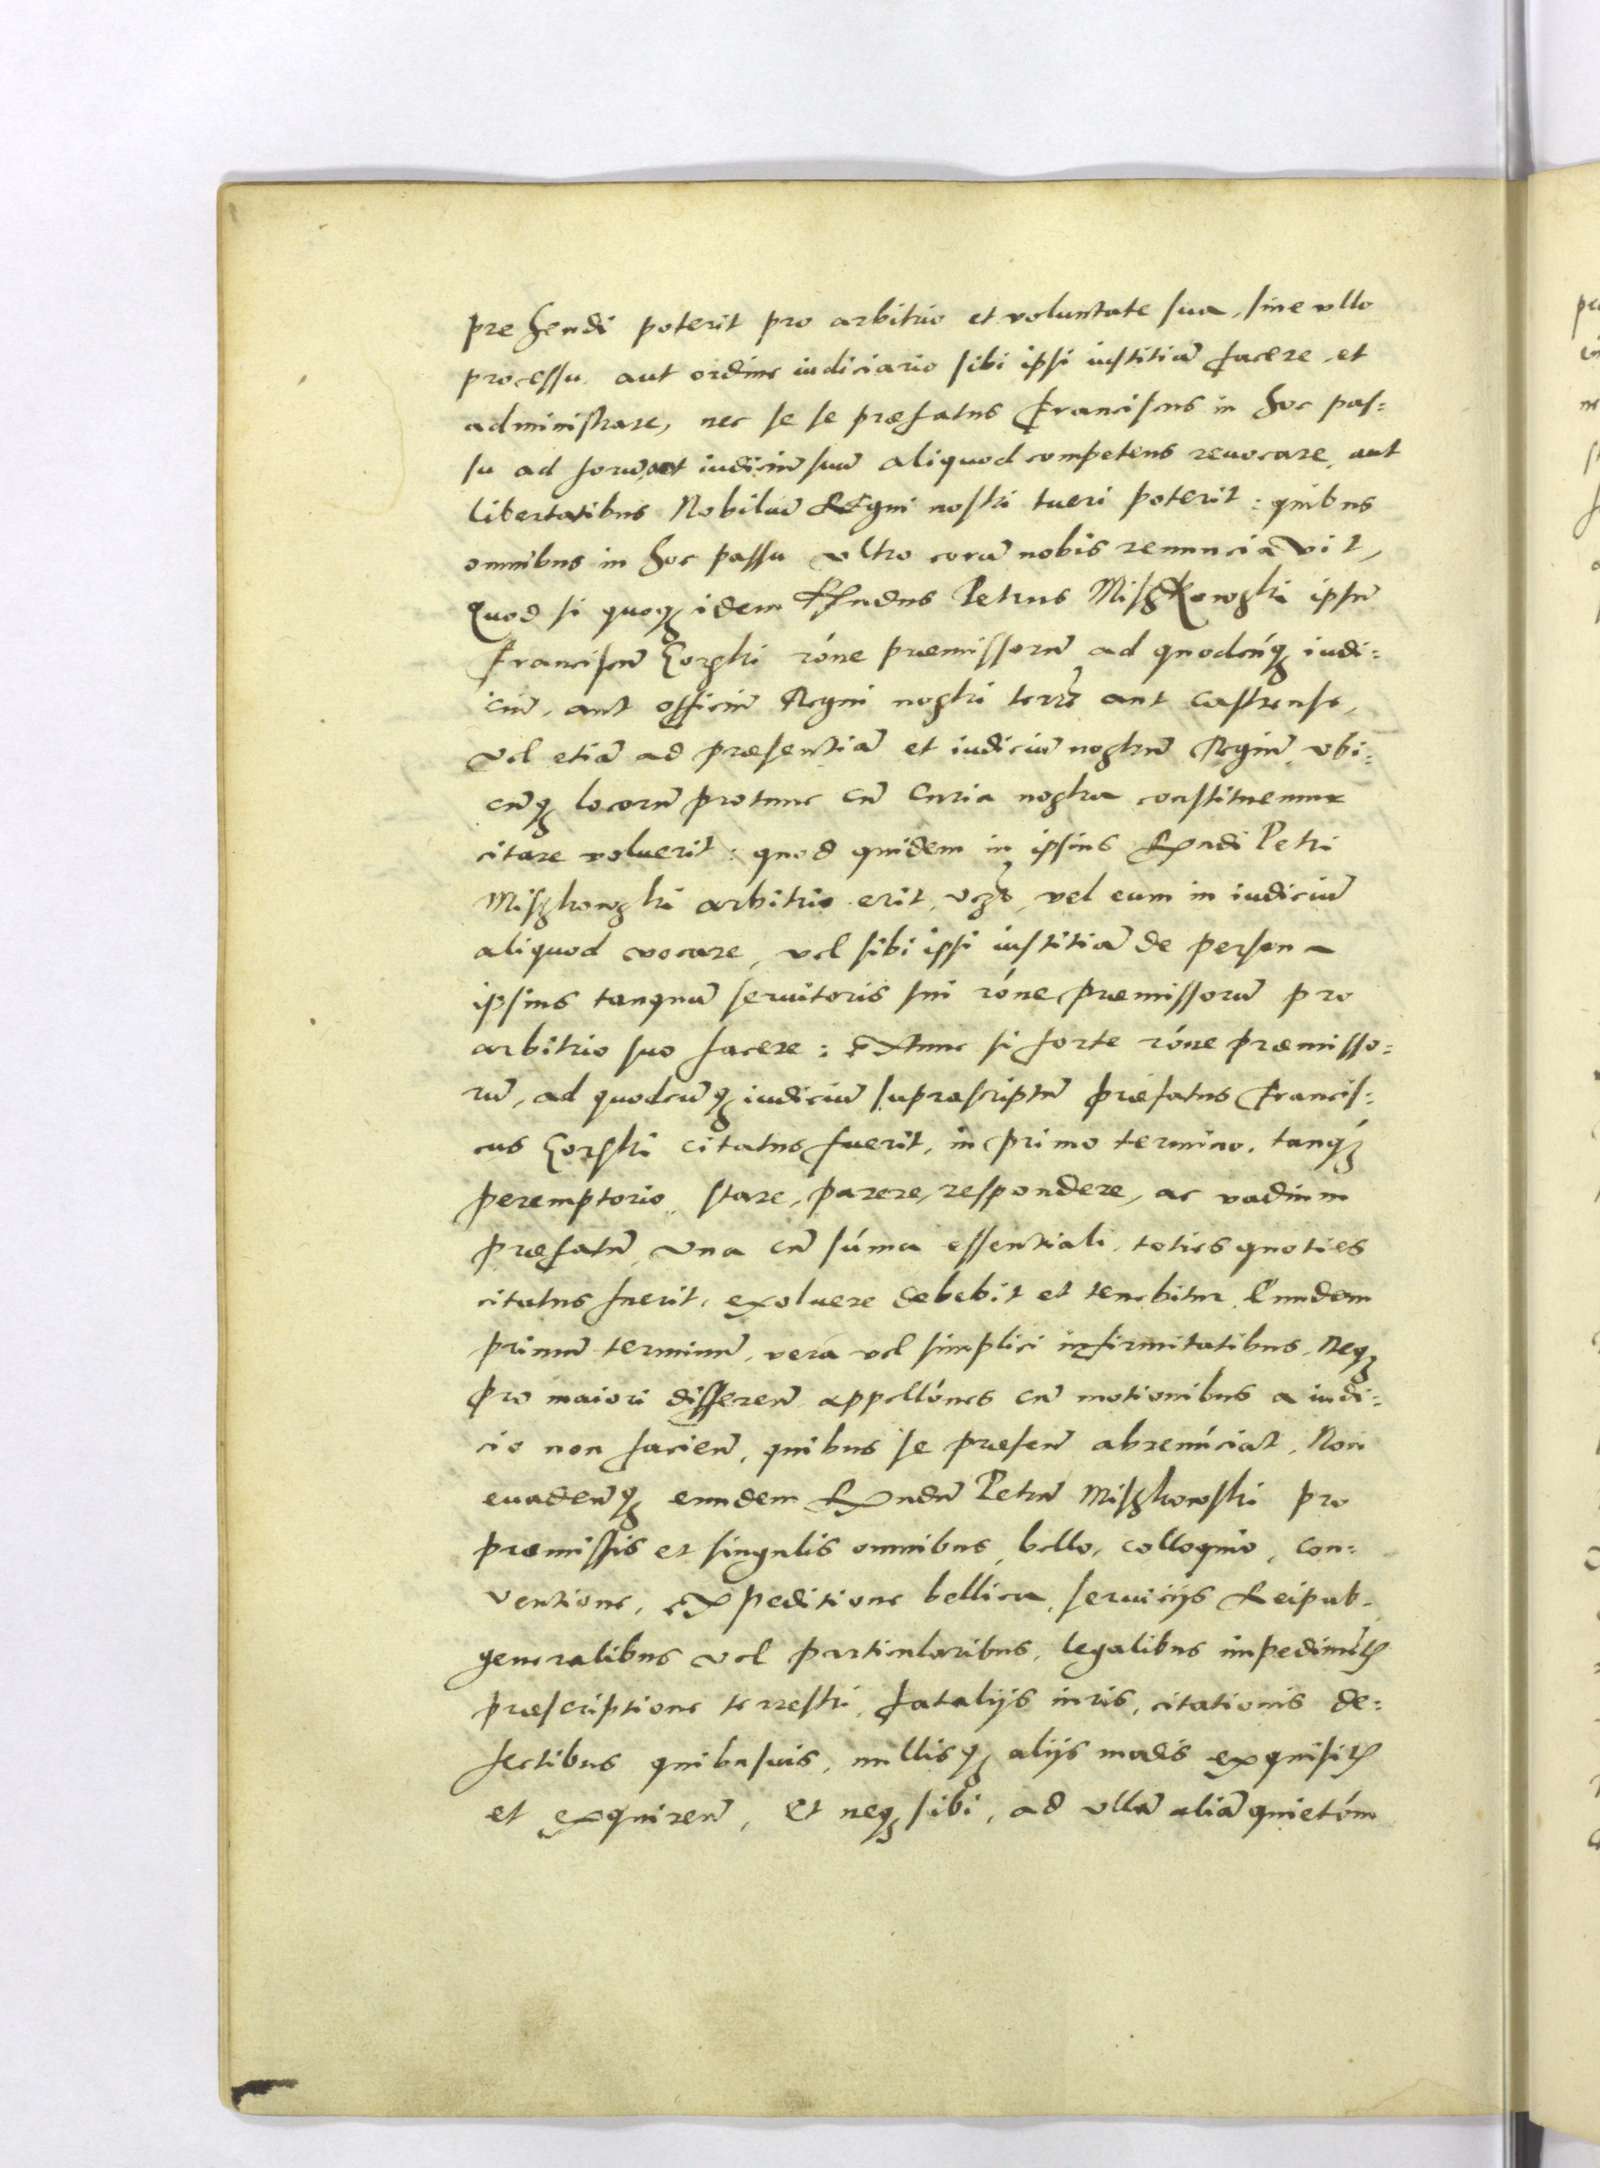 prehendi poterit pro arbitrio et voluntate sua, sine vllo
processu aut ordine iudiciario sibi ipsi iustitiã facere et
administrare, nec se se præfatus Franciscus in hoc pas=
su ad forũ aut iudiciũ suũ aliquod competens reuocare, aut
libertatibus Nobiliũ Regni nostri tueri poterit: quibus
omnibus in hoc passu vltro corã nobis renunciavit,
Quod si quoqʒ idem Rndus Petrus Miszkowski ipsũ
Franciscũ Gorski róne præmissorũ ad quodcũqʒ iudi=
ciũ, aut officiũ Regni nostri terre aut castrense,
vel etiã ad præsentiã et iudiciũ nostrũ Regiũ, vbi=
cũqʒ locorũ protunc cũ Curia nostra constituemur
citare voluerit: quod quidem in ipsius Rndi Petri
Miszkowski arbitrio erit, vel eum in iudiciũ
aliquod vocare, vel sibi ipsi iustitiã de persona
ipsius tanquã seruitoris sui róne præmissorũ pro
arbitrio suo facere: extunc si forte róne præmisso=
rũ, ad quodcũqʒ iudiciũ suprascriptũ præfatus Francis=
cus Gorski citatus fuerit, in primo termino, tanqʒ
peremptorio, stare, parere, respondere, ac vadium
præfatũ, vna cũ súma essentiali, toties quoties
citatus fuerit, exoluere debebit et tenebitur. Eundem
primũ terminũ, vera vel simplici infirmitatibus, Neqʒ
pro maiori differeñ appellónes cũ motionibus a iudi=
cio non facieñ, quibus se præseñ abrenúciat, Non
euadeñqʒ eundem Rndũ Petrũ Miszkowski pro
præmissis et singulis omnibus, bello, colloquio, con=
ventione, expeditione bellica, seruicijs Reipub.
generalibus vel particularibus, legalibus impedimẽt
præscriptione terrestri, fatalijs iuris, citationis de=
fectibus quibusuis, nullisqʒ alijs modis exquisit
et exquireñ, Et neqʒ sibi, ad vllã aliã quietóm